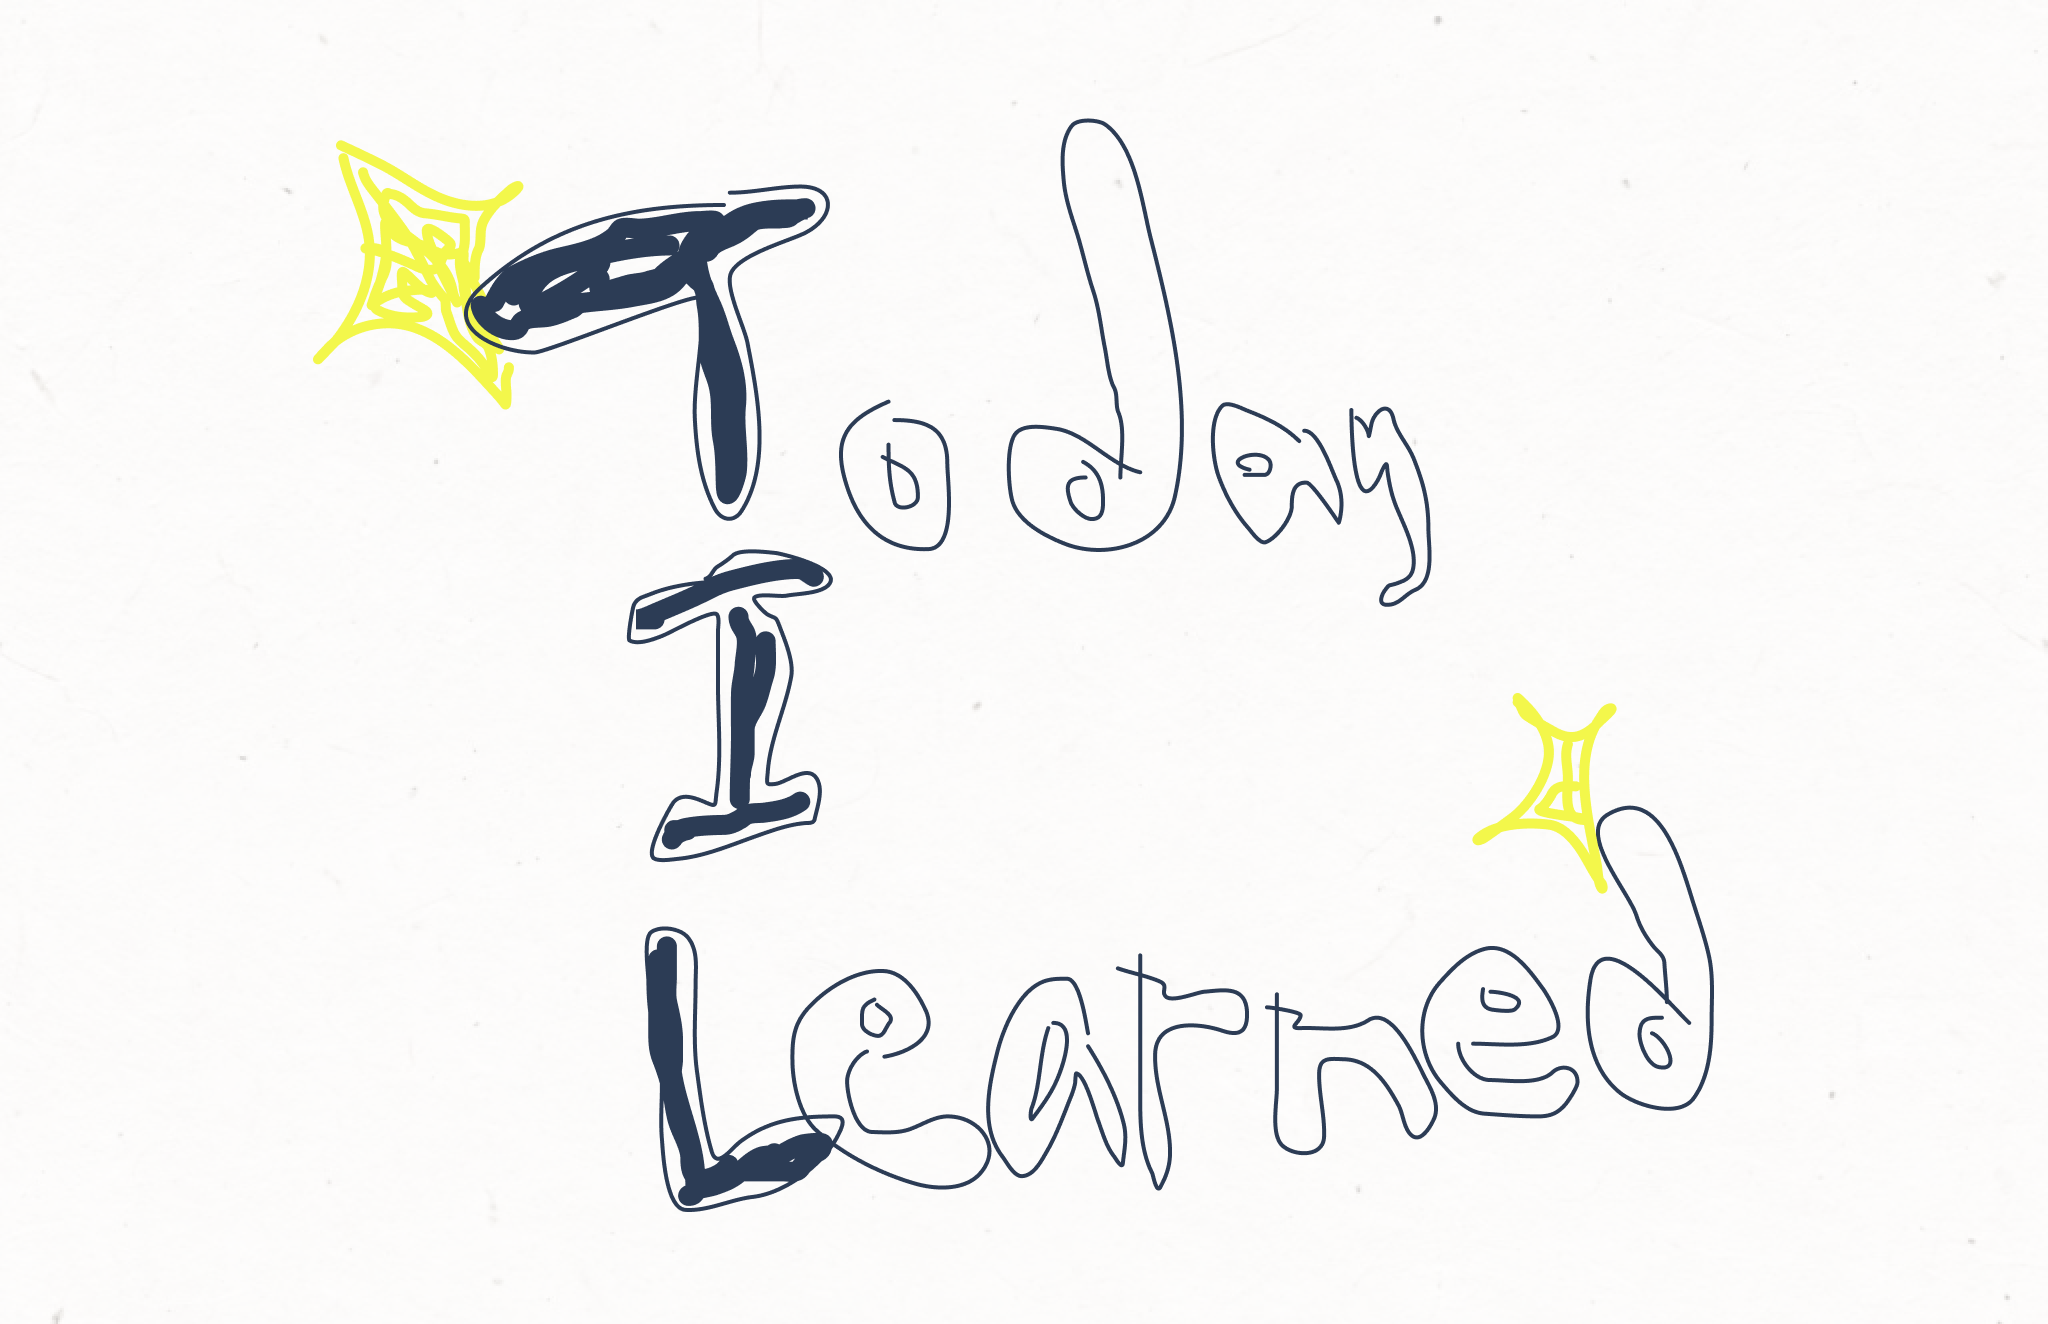 Today
I
Learned